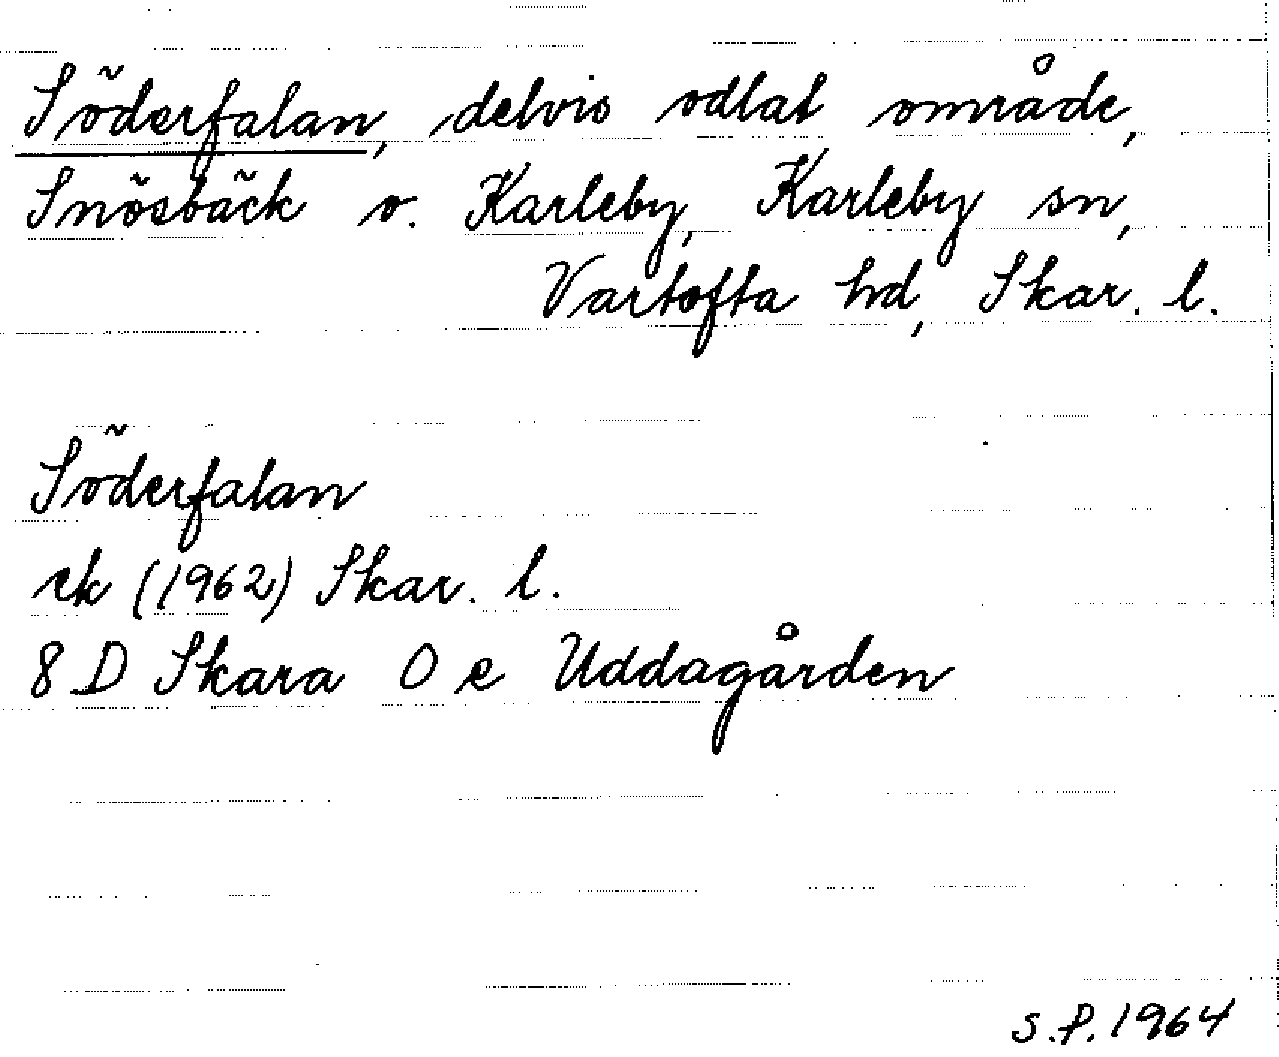 Söderfalan, delvis odlat område,
Snösbäck o. Karleby, Karleby sn,
Vartofta hd, Skar. l.
Söderfalan
ek (1962) Skar. l.
8 D Skara 0 e Uddagården
S.P. 1964